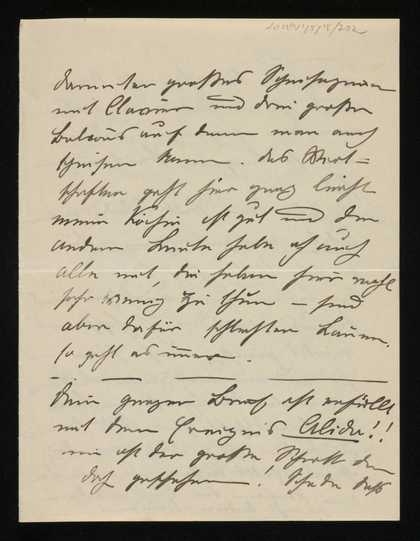 darunter großes Speisezimmer
mit Clavier und drei große
Balcons auf denen man auch
speisen kann. das Wirt=
schaften geht hier ganz leicht
meine Köchin ist gut und die
anderen Leute habe ich auch
alle mit, die haben hier
sehr wenig zu thun – sind
aber dafür schlechter Laune.
so geht es immer.
Dein ganzer Brief ist erfüllt
mit dem Ereignis Alida!!
nun ist der große Schritt
doch geschehen! Schade daß